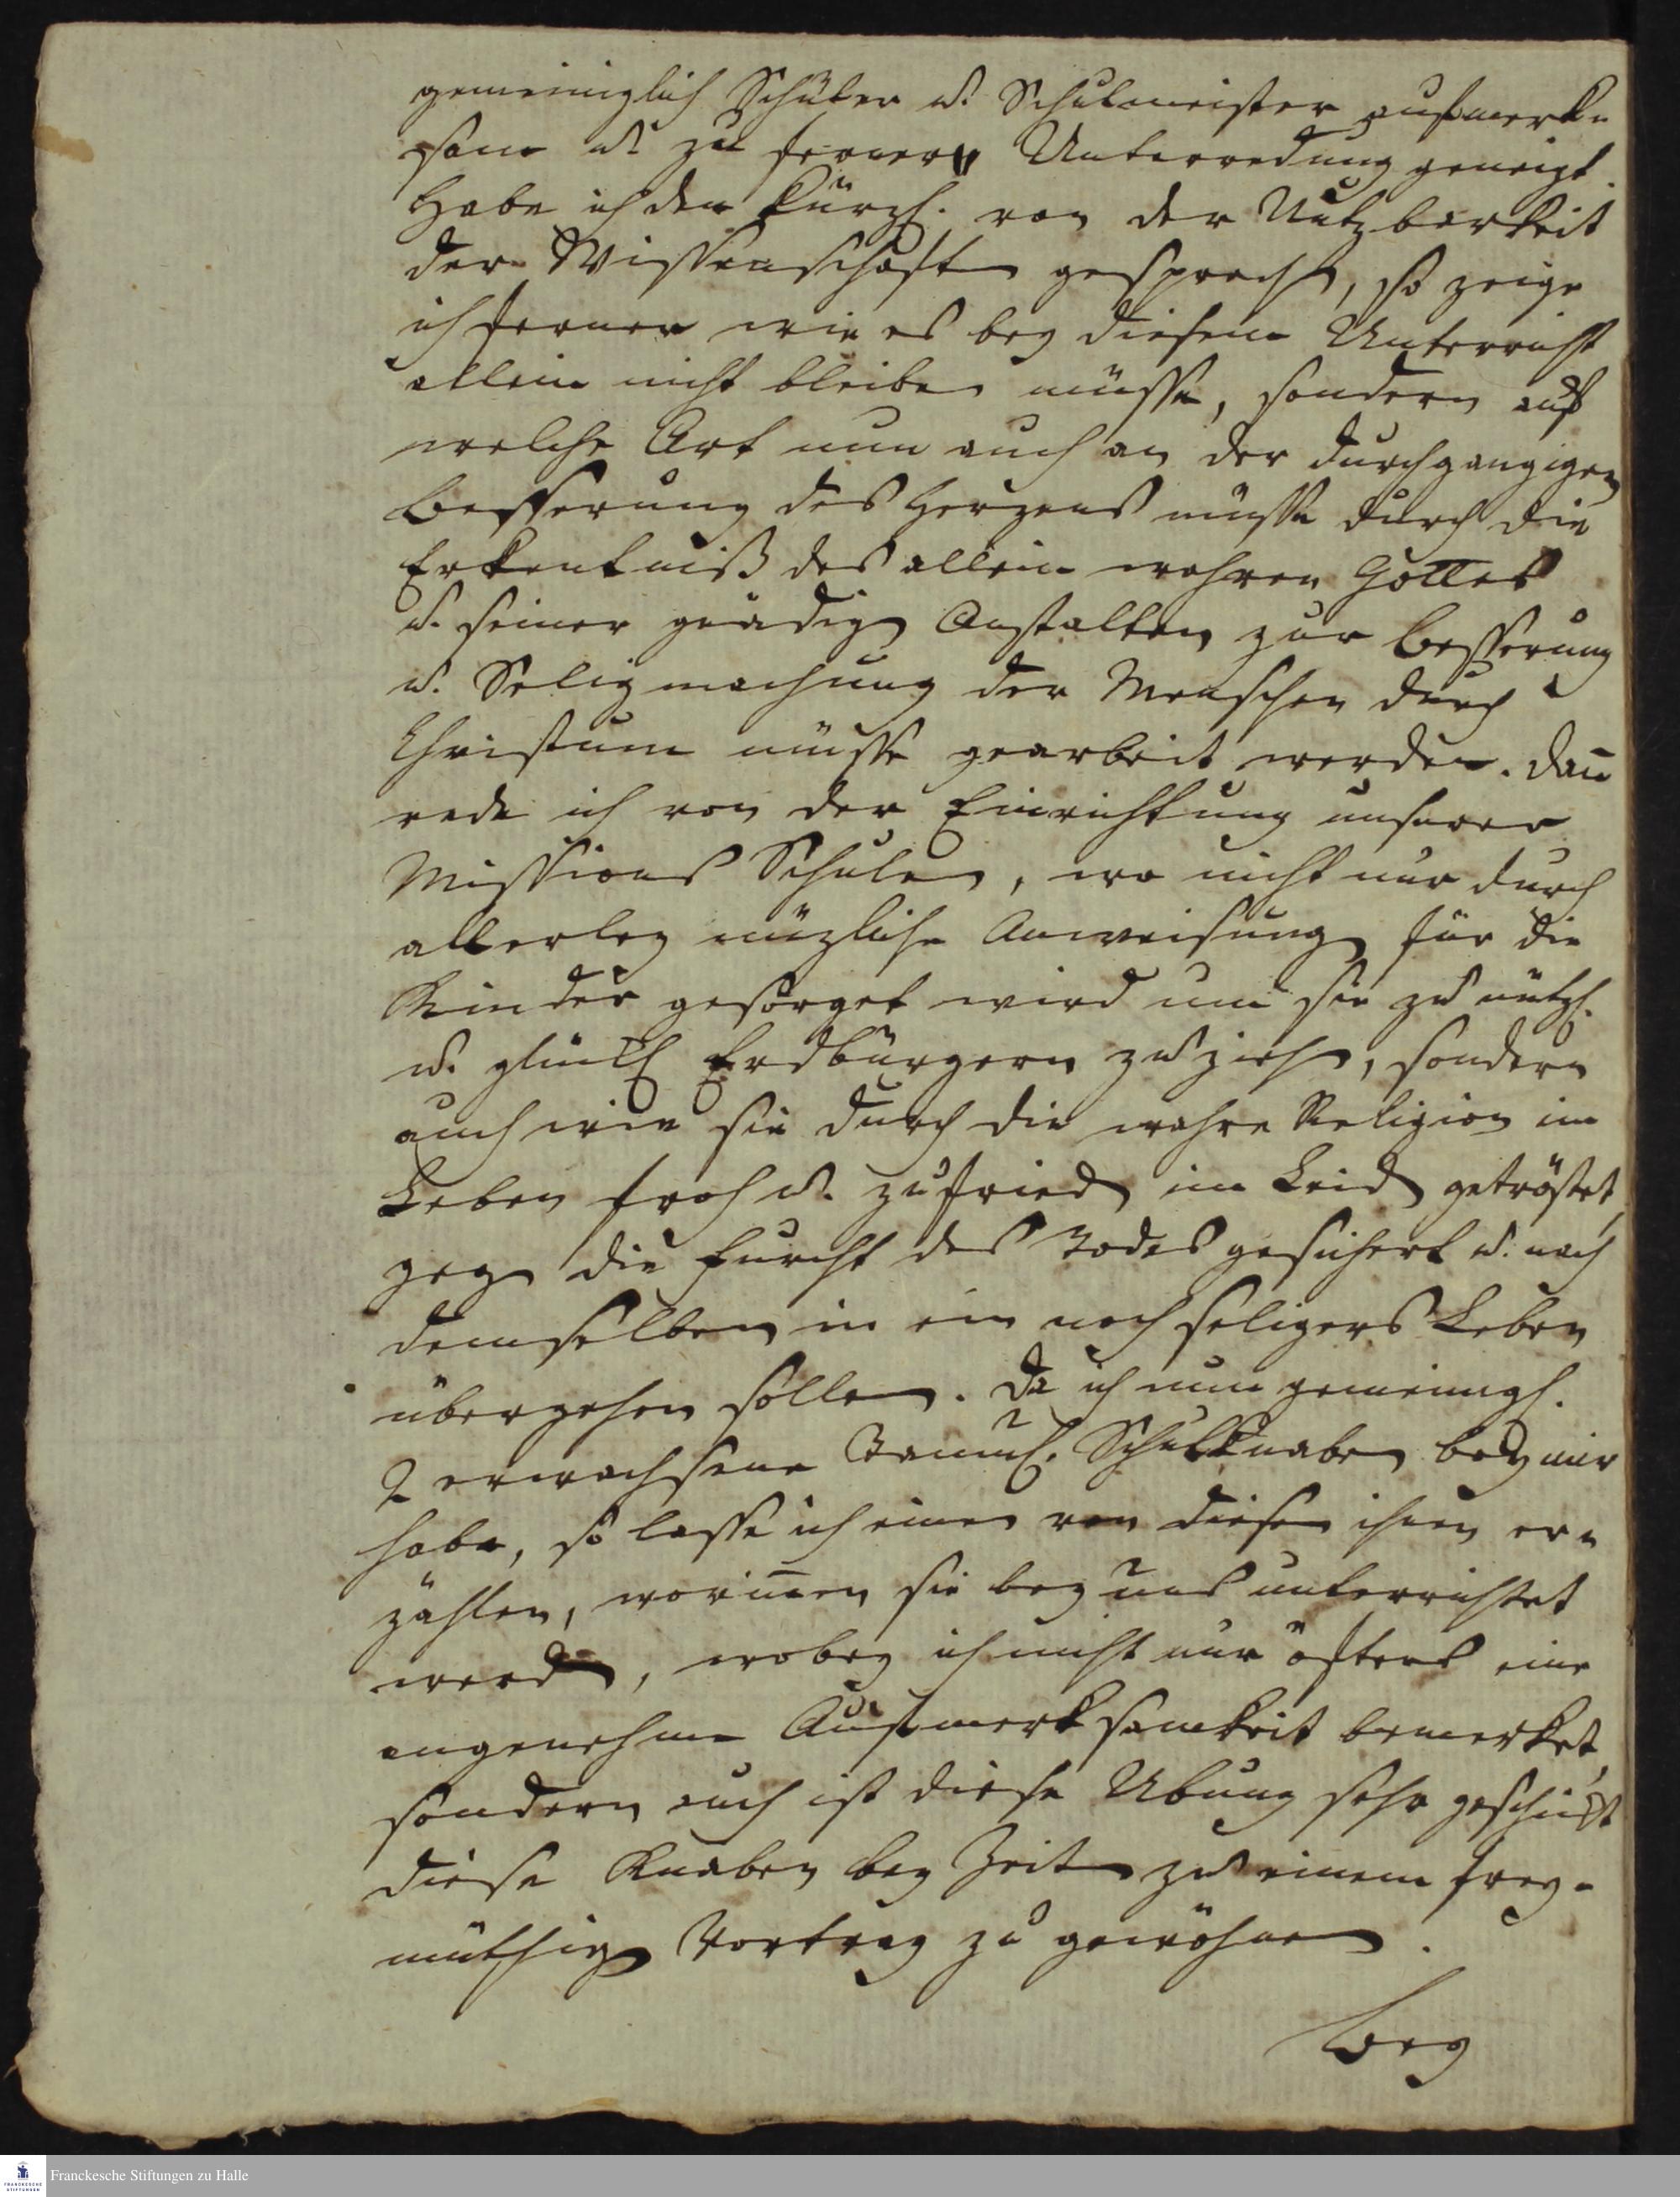 gemeiniglich Schüler u. Schulmeister aufmerk-
sam u. zu fernern Unterredung geneigt.
Habe ich den kürzl. von der Nutzbarkeit
der Wissenschaften gesprochen, so zeige
ich ferner wie es bey diesem Unterricht
allein nicht bleiben müsse, sondern auf
welche Art nun auch an der durchgangigen
Besserung des Herzens müsse durch die
Erkentniß des allein wahren Gottes
u. seiner gnädigen Anstalten zur Besserung
u. Seligmachung der Menschen durch
Christum müsse gearbeit werden. Dañ
rede ich von der Einrichtung unserer
Missions Schulen, wo nicht nur durch
allerley nüzliche Anweisung für die
Kinder gesorget wird um sie zu nützl.
u. glückl Erdbürgern zu ziehen, sondern
auch wie sie durch die wahre Religion im
Leben froh u. zufrieden im Leiden getröstet,
gegen die Furcht des Todes gesichert u. nach
demselben in ein noch seligers Leben
übergehen sollen. Da ich nun gemeinigl.
2 erwachsene Tamul. Schulknaben bey mir
habe, so lasse ich einen von diesen ihnen er-
zählen, woriñen sie bey uns unterrichtet
werden, wobey ich nicht nur öfters eine
angenehme Aufmerksamkeit bemerket,
sondern auch ist diese Ubung sehr geschickt
diese Knaben bey Zeiten zu einem frey-
müthigen Vortrag zu gewöhnen.
Bey
Franckesche Stiftungen zu Halle
FRANCKESCHE
STIFTUNGEN